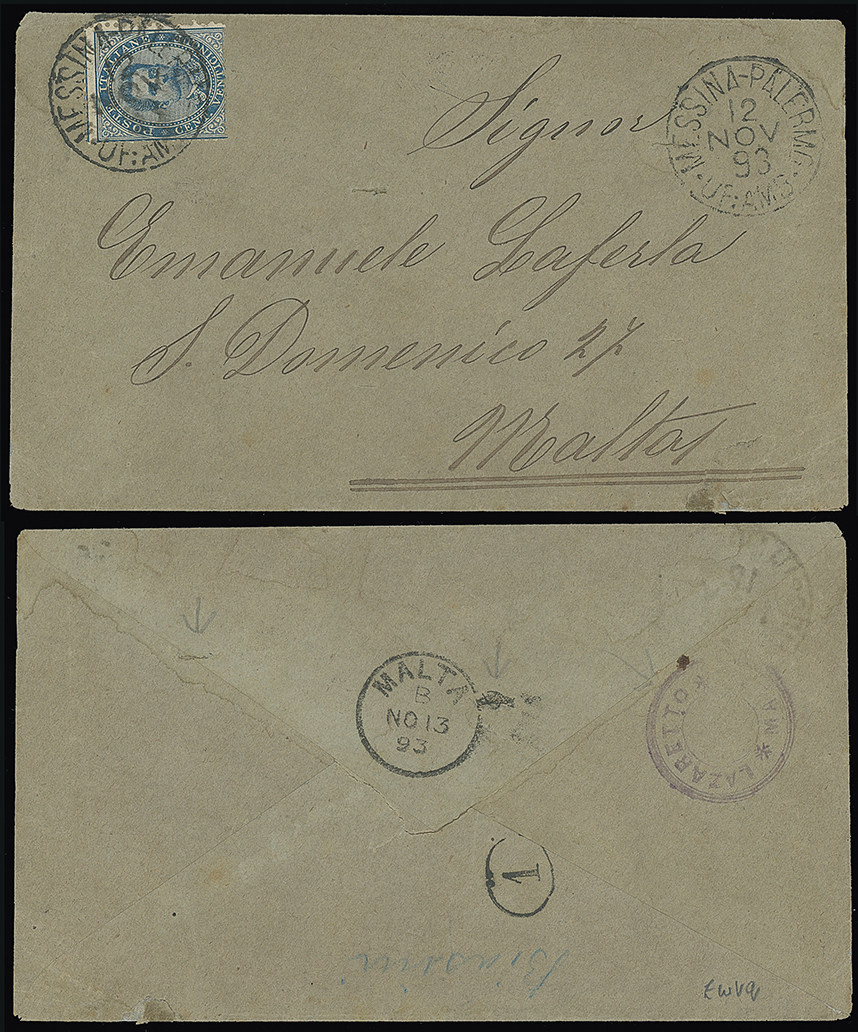 MESSINA-PALERMO
UF: AM
POSTE ITALIANE * CENT VENTICINQUE *
MESSINA-PALERMO
12
NOV
93
UF: AMB.
Signor
Emanuele Laferla
S. Domenico 27
Malta
MALTA
B
NO 13
93
* LAZARETTO * MA
1